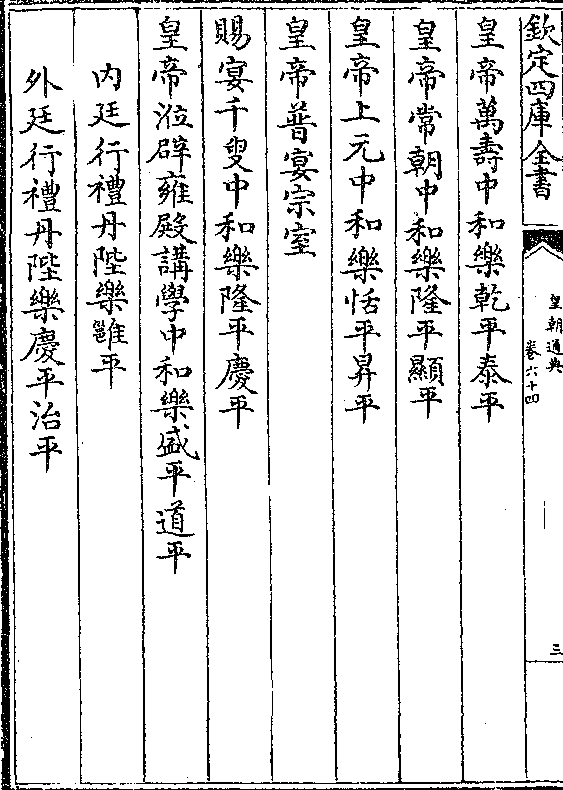 欽定四庫全書
皇朝通典
卷六十四
三
皇帝萬壽中和樂乾平泰平
皇帝常朝中和樂隆平顯平
皇帝上元中和樂恬平昇平
皇帝普宴宗室
賜宴千叟中和樂隆平慶平
皇帝涖辟雍殿講學中和樂盛平道平
內廷行禮丹陛樂雝平
外廷行禮丹陛樂慶平治平